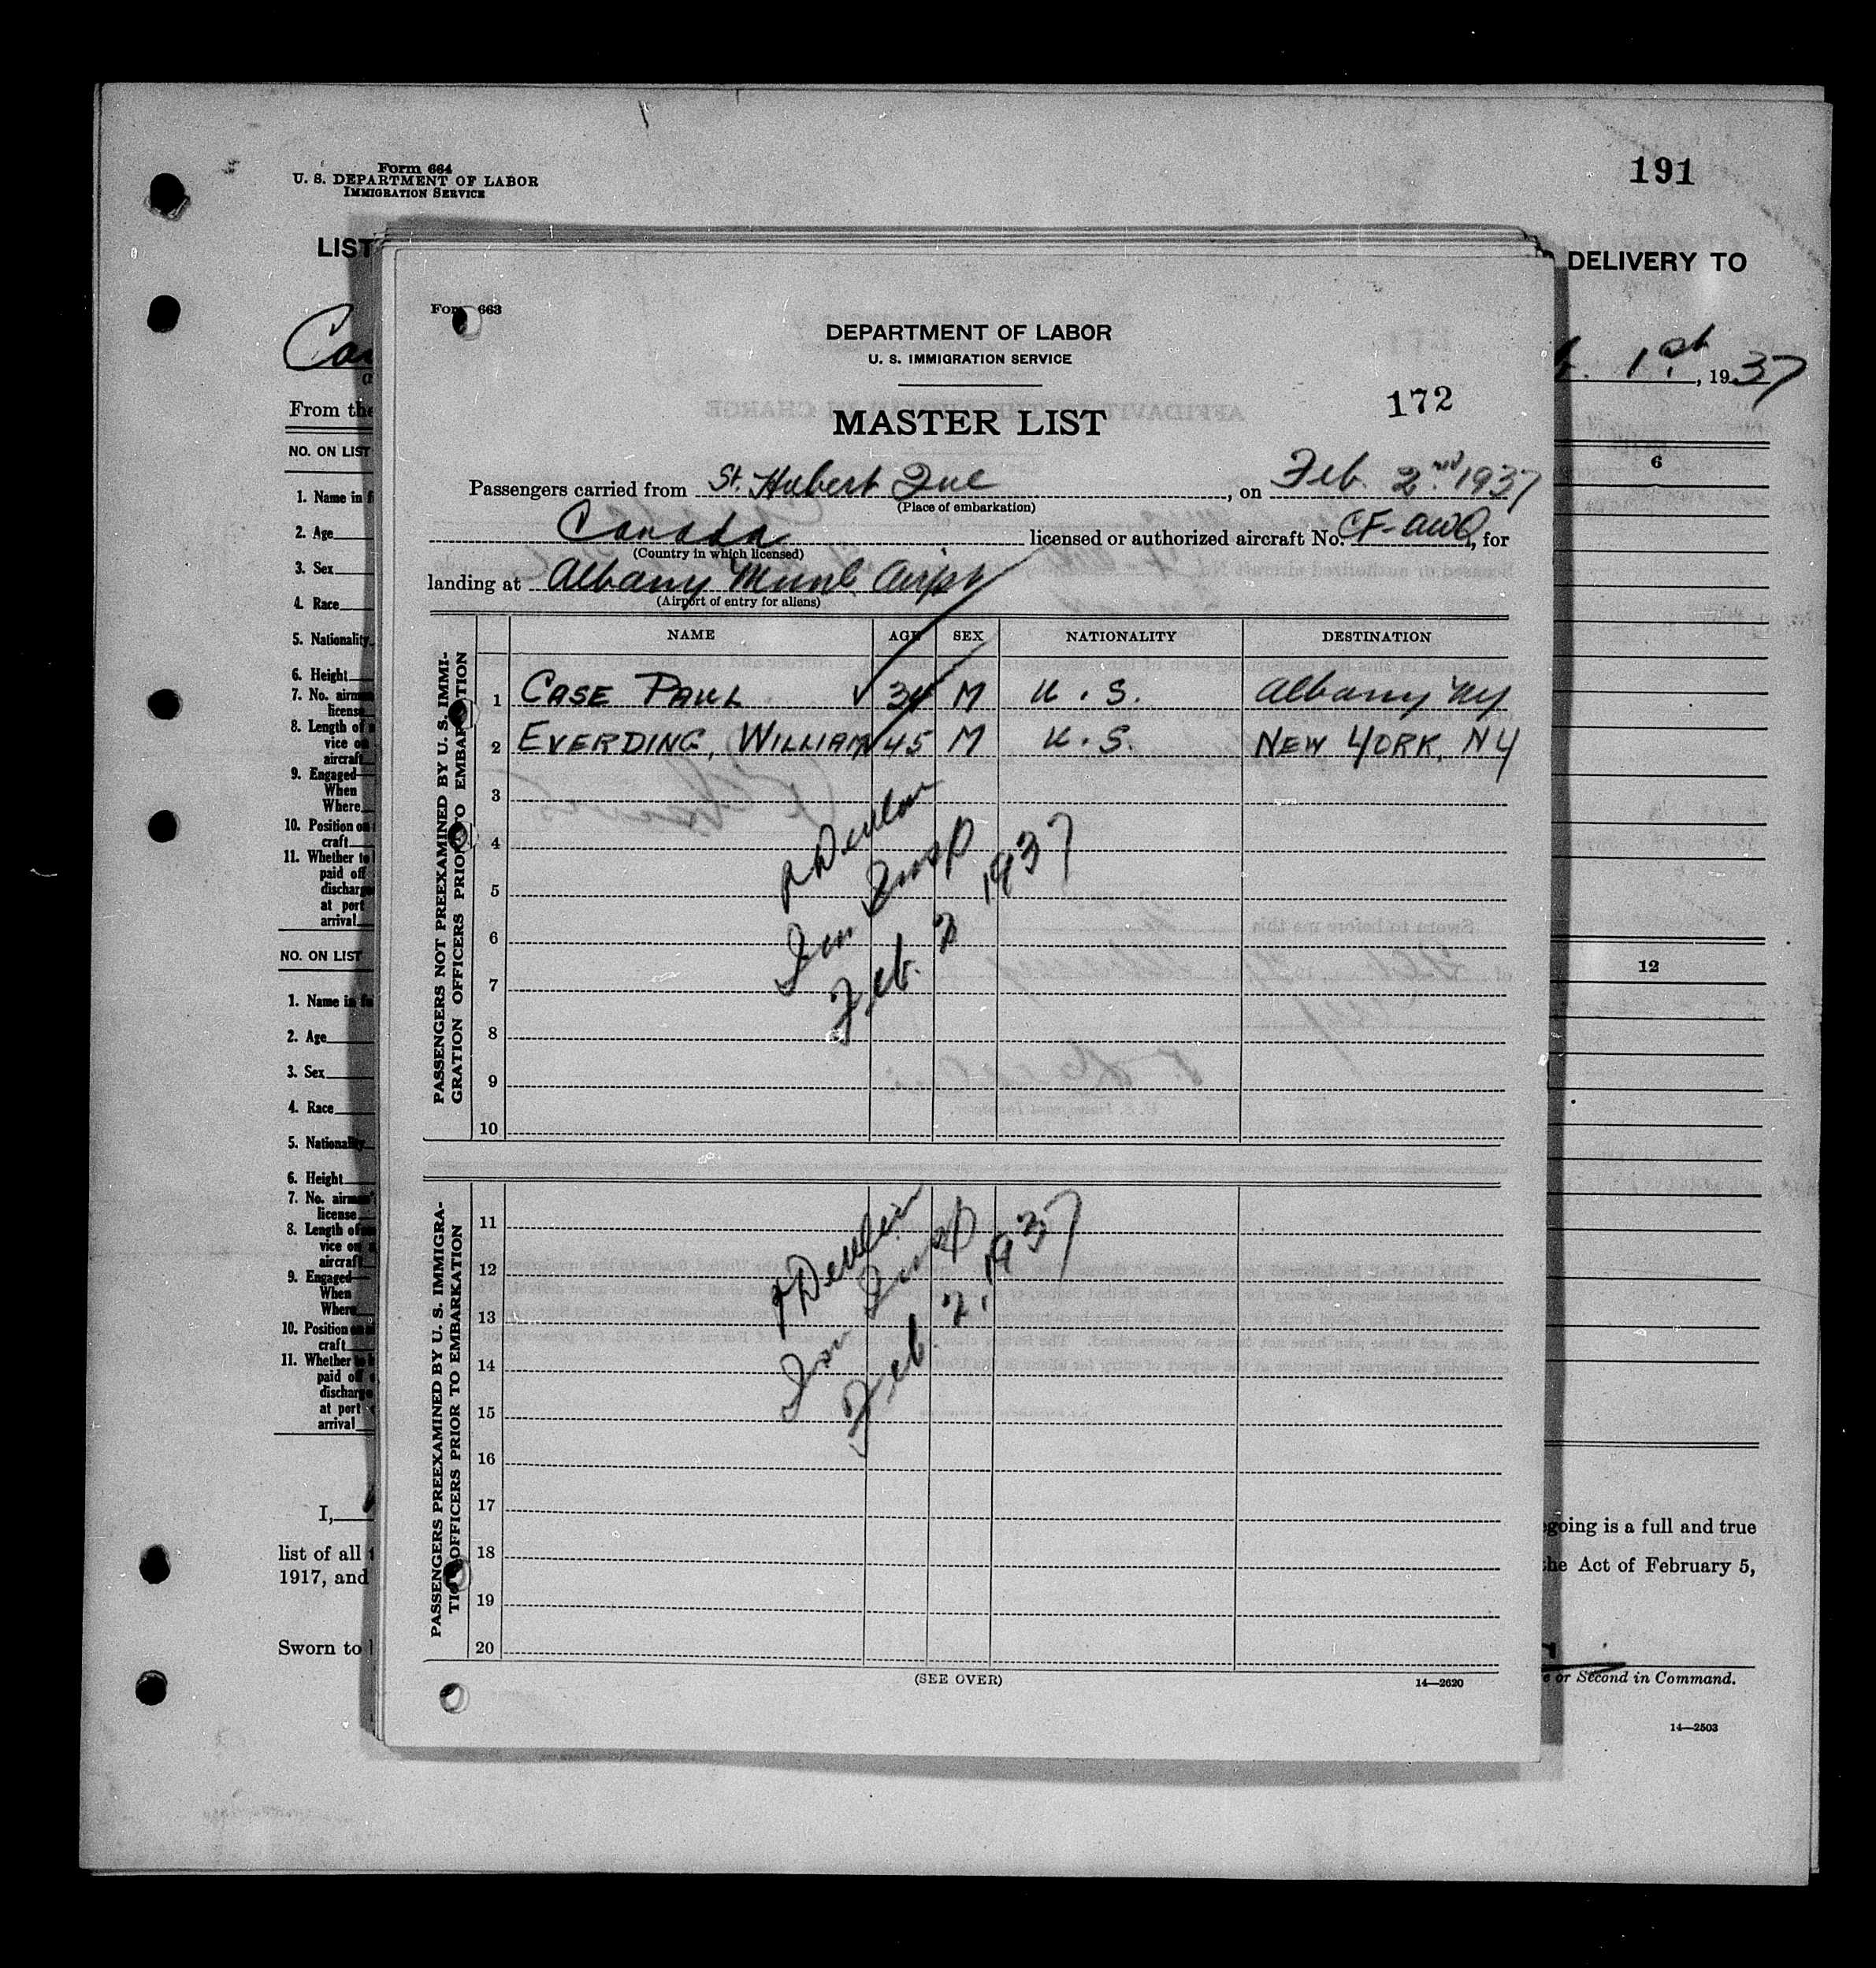 Form 664
U. S. DEPARTMENT OF LABOR
IMMIGRATION SERVICE
191
LIST
DELIVERY TO
1st, 1937
From the
NO. ON LIST
6
1. Name in
2. Age
3. Sex
4. Race
5. Nationality
6. Height
7. No. airman
license
8. Length of
vice on
aircraft
9. Engaged—
When
Where
10. Position on
craft
11. Whether to
paid off
discharge
at port
arrival
NO. ON LIST
12
1. Name in
2. Age
3. Sex
4. Race
5. Nationality
6. Height
7. No. airman's
license
8. Length of
vice on
aircraft
9. Engaged—
When
Where
10. Position on
craft
11. Whether
paid of
discharge
at port
arrival
I,
going is a full and true
list of all
the Act of February 5,
1917, and
Sworn to
or Second in Command.
14—2503
Form 663
DEPARTMENT OF LABOR
U. S. IMMIGRATION SERVICE
MASTER LIST
172
Passengers carried from St. Hubert Que, on Feb. 2nd 1937
(Place of embarkation)
Canada licensed or authorized aircraft No. CF-AWO, for
(Country in which licensed)
landing at Albany Munl. Airpt
(Airport of entry for aliens)
NAME AGE SEX NATIONALITY DESTINATION
PASSENGERS NOT PREEXAMINED BY U. S. IMMI-
GRATION OFFICERS PRIOR TO EMBARKATION
1 CASE PAUL. √ 34 M U.S. Albany NY
2 EVERDING, WILLIAM √ 45 M U.S. NEW YORK, NY
3
4
5
6
7
8
9
10
Imm Insp
Feb. 2 1937
PASSENGERS PREEXAMINED BY U. S. IMMIGRA-
TION OFFICERS PRIOR TO EMBARKATION
11
12
13
14
15
16
17
18
19
20
Devlin
Imm Insp
Feb. 2, 1937
(SEE OVER)
14—2620